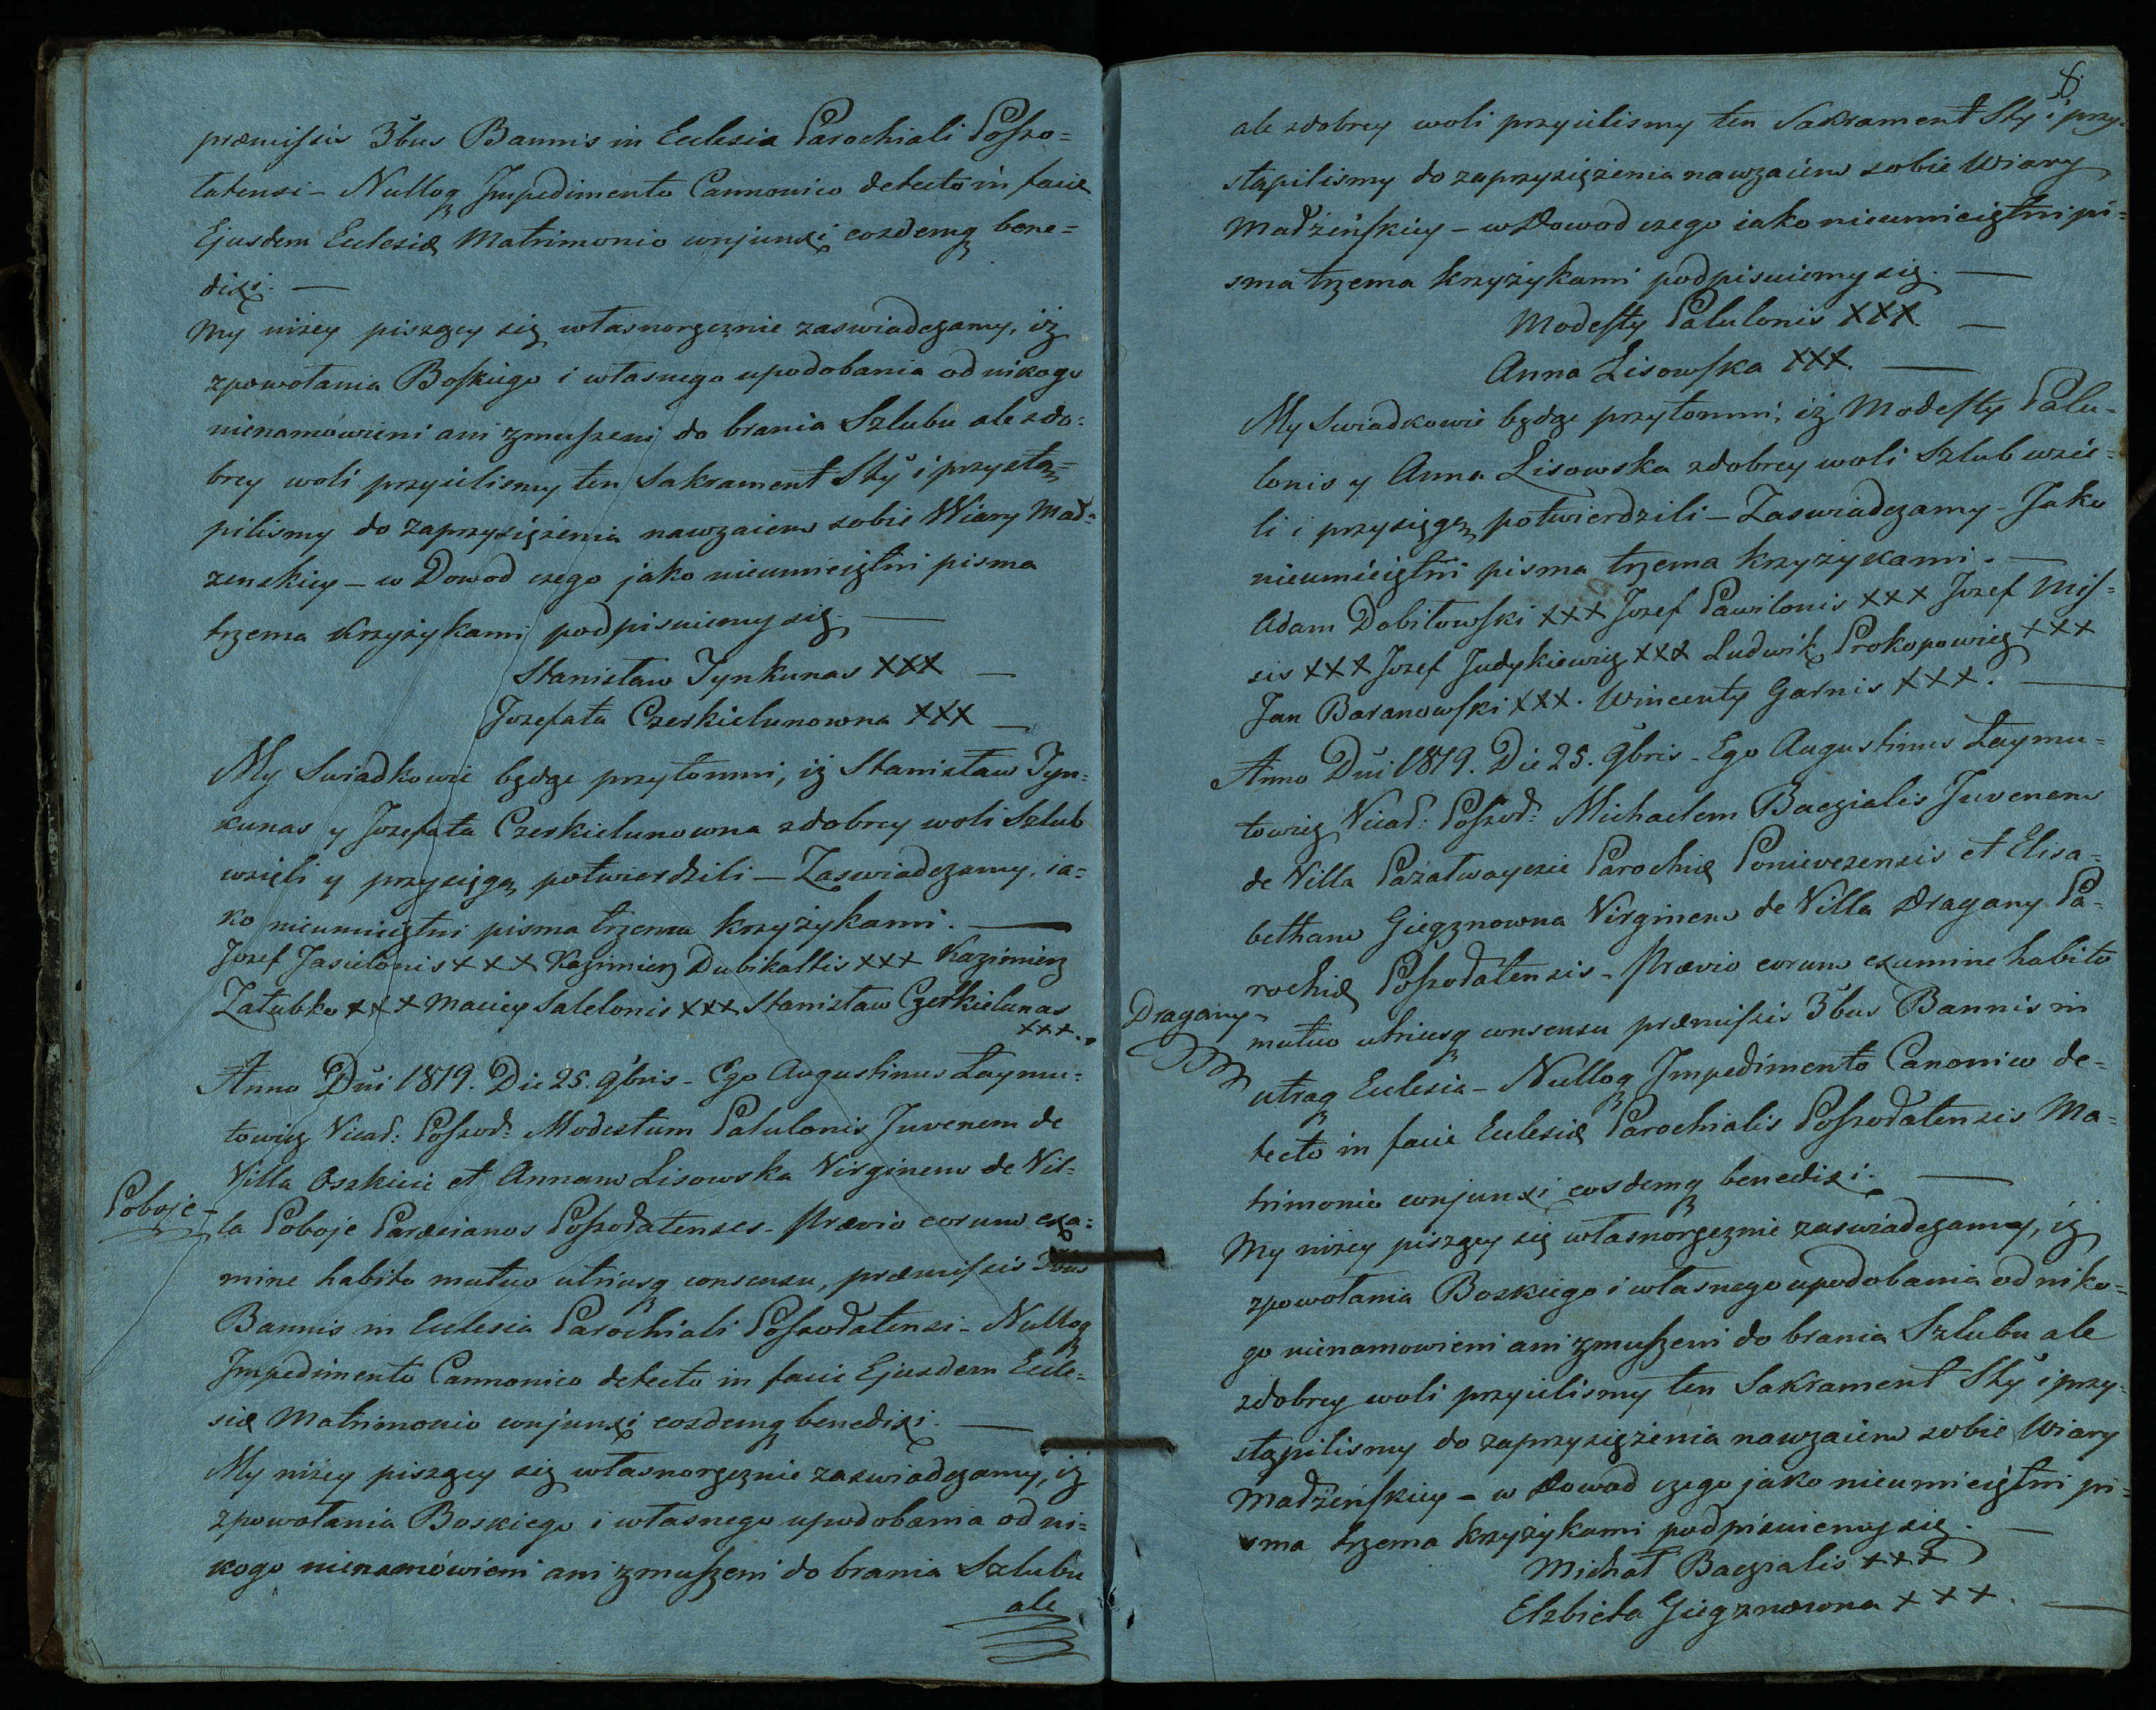 præmissis 3bus Bannis in Ecclesia Parochiali Poszo=
tatensi - Nulloq Impedimento Cannonico detecto in facie
Ejusdem Ecclesiæ Matrimonio conjunxi eosdemq bene=
dixi. —
My niżey piszący się własnoręcznie zaswiadczamy, iż
zpowołania Boskiego i własnego upodobania od nikogo
nienamówieni ani zmuszeni do brania Szlubu ale zdo=
brey woli przyielismy ten Sakrament Sty i przystą=
pilismy do zaprzysiężenia nawzaiem sobie Wiary Mał=
zenskiey - w Dowod czego jako nieumieiętni pisma
trzema Krzyżykami podpisuiemy się. —
Stanisław Tynkunas XXX —
Jozefata Czerkielunowna XXX —
My Swiadkowie będąc przytomni, iż Stanisław Tyn=
kunas y Jozefata Czerkielunowna zdobrey woli Szlub
wzięli y przysięgą potwierdzili - Zaswiadczamy, ia=
ko nieumieiętni pisma trzema krzyżykami. —
Jozef Jasielonis XXX Kazimierz Dubikaltis XXX Kazimierz
Załubko XXX Maciey Salelonis XXX Stanisław Czerkielunas
XXX.
Anno Dni 1819. Die 25. 9bris - Ego Augustinus Laymu=
towicz Vicad: Poszod: Modestum Palulonis Juvenem de
Villa Oszkicie et Annam Lisowska Virginem de Vil=
Poboje -
la Poboje Paræcianos Poszodatenses - Prævio eorum exa=
mine habito mutuo utriusq consensu, præmissis 3bus
Bannis in Ecclesia Parochiali Poszodatensi - Nulloq
Impedimento Cannonico detecto in facie Ejusdem Eccle=
siæ Matrimonio conjunxi eosdemq benedixi. —
My niżey piszący się własnoręcznie zaswiadczamy, iż
zpowołania Boskiego i własnego upodobania od ni=
kogo nienamówieni ani zmuszeni do brania Szlubu
ale
8.
ale zdobrey woli przyielismy ten Sakrament Sty i przy=
stąpilismy do zaprzysiężenia nawzaiem sobie Wiary
Małżeńskiey - w Dowod czego iako nieumieiętni pi=
sma trzema krzyżykami podpisuiemy się. —
Modesty Palulonis XXX —
Anna Lisowska XXX. —
My Swiadkowie będąc przytomni, iż Modesty Palu=
lonis y Anna Lisowska zdobrey woli Szlub wzię=
li i przysięgą potwierdzili - Zaswiadczamy - Jako
nieumieiętni pisma trzema krzyżykami. —
Adam Dobiłowski XXX Jozef Pawilonis XXX Jozef Mis=
sis XXX Jozef Judykiewicz XXX Ludwik Prokopowicz XXX
Jan Baranowski XXX. Wincenty Garnis XXX. —
Anno Dni 1819. Die 25. 9bris - Ego Augustinus Laymu=
towicz Vicad: Poszod: Michaelem Baczialis Juvenem
de Villa Pażałwayczie Parochiæ Ponievezensis et Elisa=
betham Giegznowna Virginem de Villa Dragany Pa=
rochiæ Poszodatensis - Prævio eorum examine habito
Dragany -
mutuo utriusq consensu præmissis 3bus Bannis in
utraq Ecclesia - Nulloq Impedimento Canonico de=
tecto in facie Ecclesiæ Parochialis Poszodatensis Ma=
trimonio conjunxi eosdemq benedixi. —
My niżey piszący się własnoręcznie zaswiadczamy, iż
zpowołania Boskiego i własnego upodobania od niko=
go nienamowieni ani zmuszeni do brania Szlubu ale
zdobrey woli przyielismy ten Sakrament Sty i przy=
stąpilismy do zaprzysiężenia nawzaiem sobie Wiary
Małżeńskiey - w Dowod czego jako nieumieiętni pi=
sma trzema krzyżykami podpisuiemy się. —
Michał Baczialis XXX
Elzbieta Giegznowna XXX. —